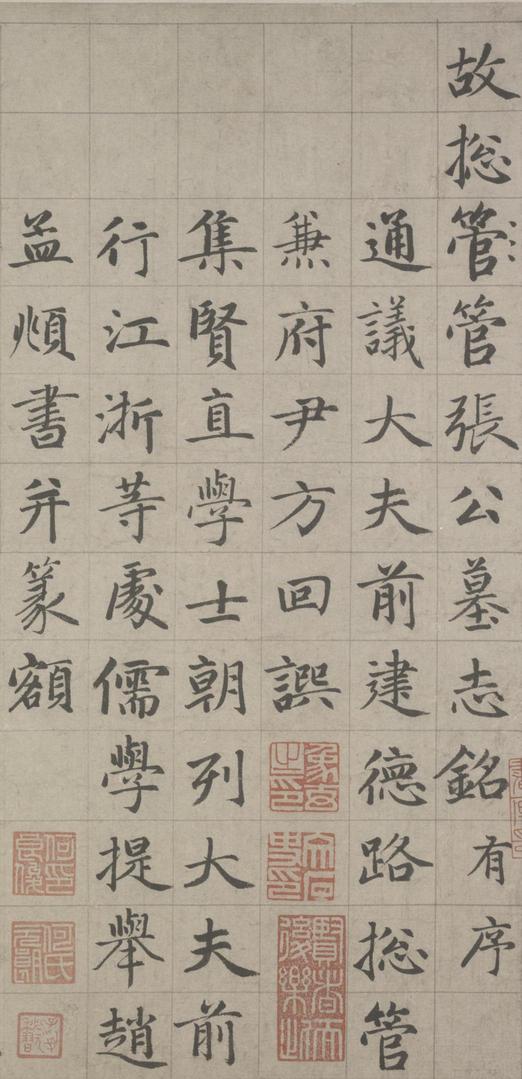 故捴管管張公墓志銘有序
通議大夫前建德路捴管
兼府尹方回譔
集賢直學士朝列大夫前
行江浙等處儒學提舉趙
孟頫書并篆額
何印良俊
何氏元朗